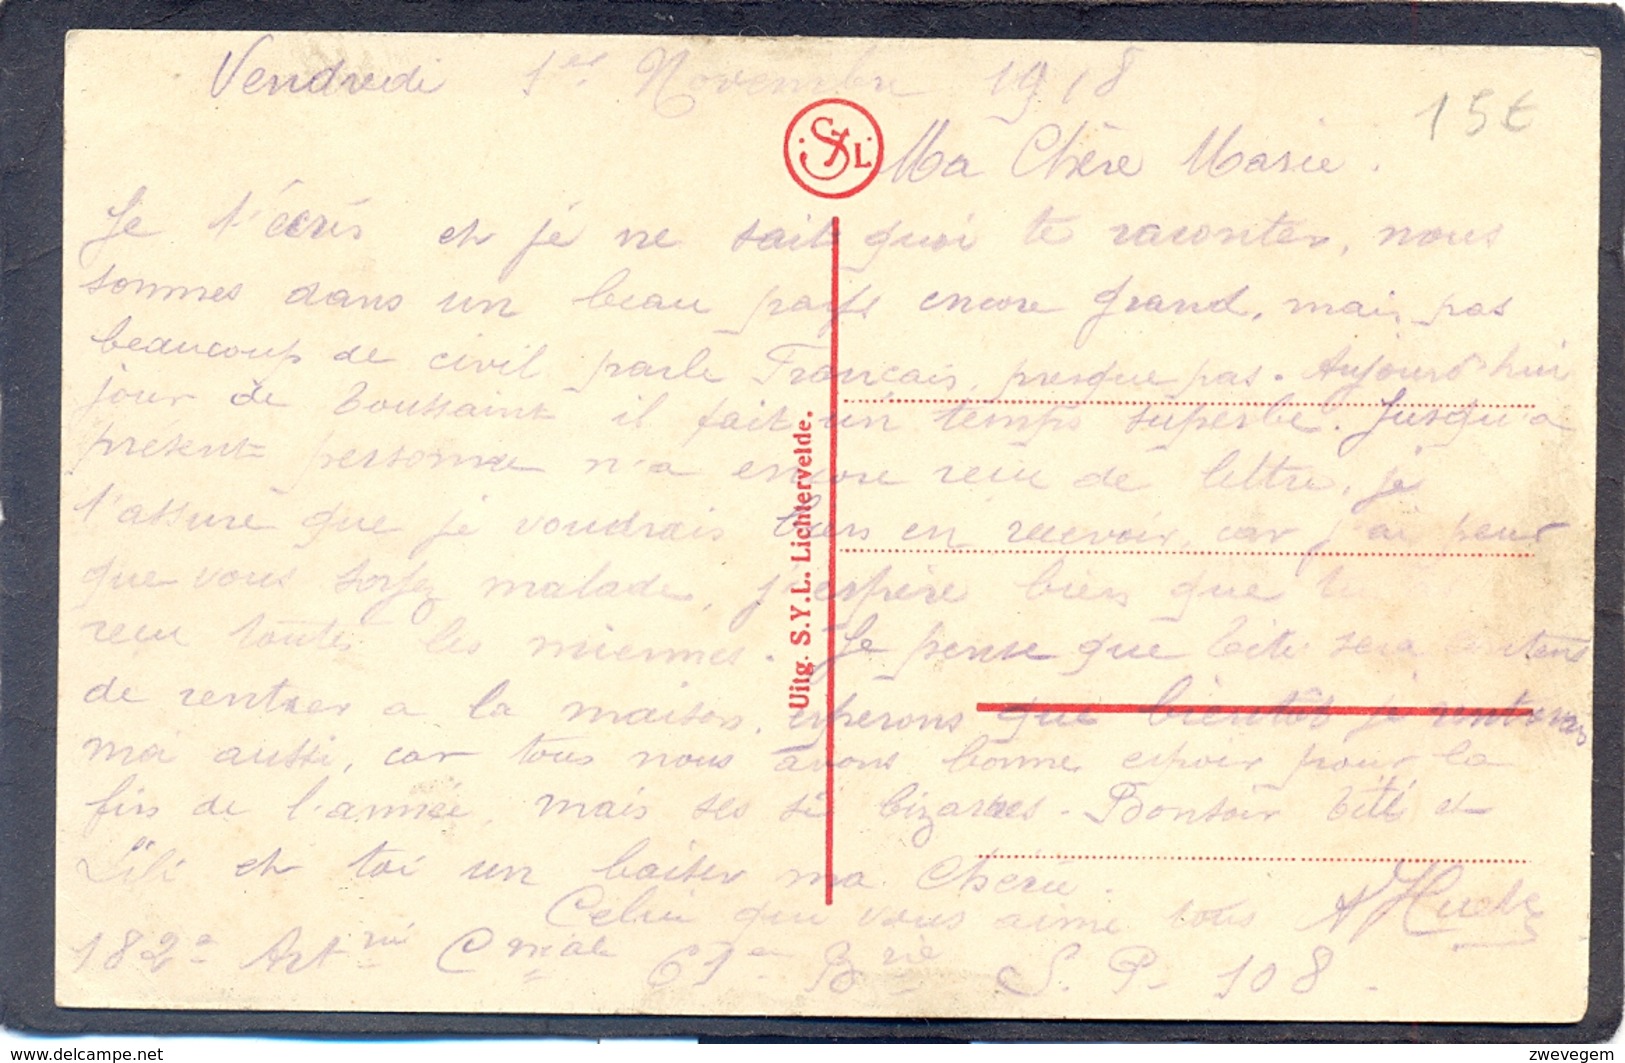 Vendredi 1er Novembre 1918
15€
S Y L
Ma Chère Marie.
Je t'écris et je ne sait quoi te raconter, nous
sommes dans un beau pays encore grand, mais pas
beaucoup de civil parle Francais, presque pas. Aujourd'hui
jour de Toussaint il fait un temps superbe. Jusqu'a
présent personne n'a encore recu de lettre, je
t'assure que je voudrais bien en recevoir, car j'ai peur
que vous soyez malade, j'espère bien que tu
recu toutes les miennes. Je pense que Titi sera
de rentrer a la maison, esperons que bientôt je rentrerais
moi aussi, car tous nous avons bonne espoir pour la
fin de l'année, mais ses si bizarres. Bonsoir Titi et
Lili et toi un baiser ma Cherie.
Celui qui vous aime tous
182e Artrie 61e Brie S. P. 108.
Uitg. S.Y.L. Lichtervelde.
delcampe.com
zwevegem